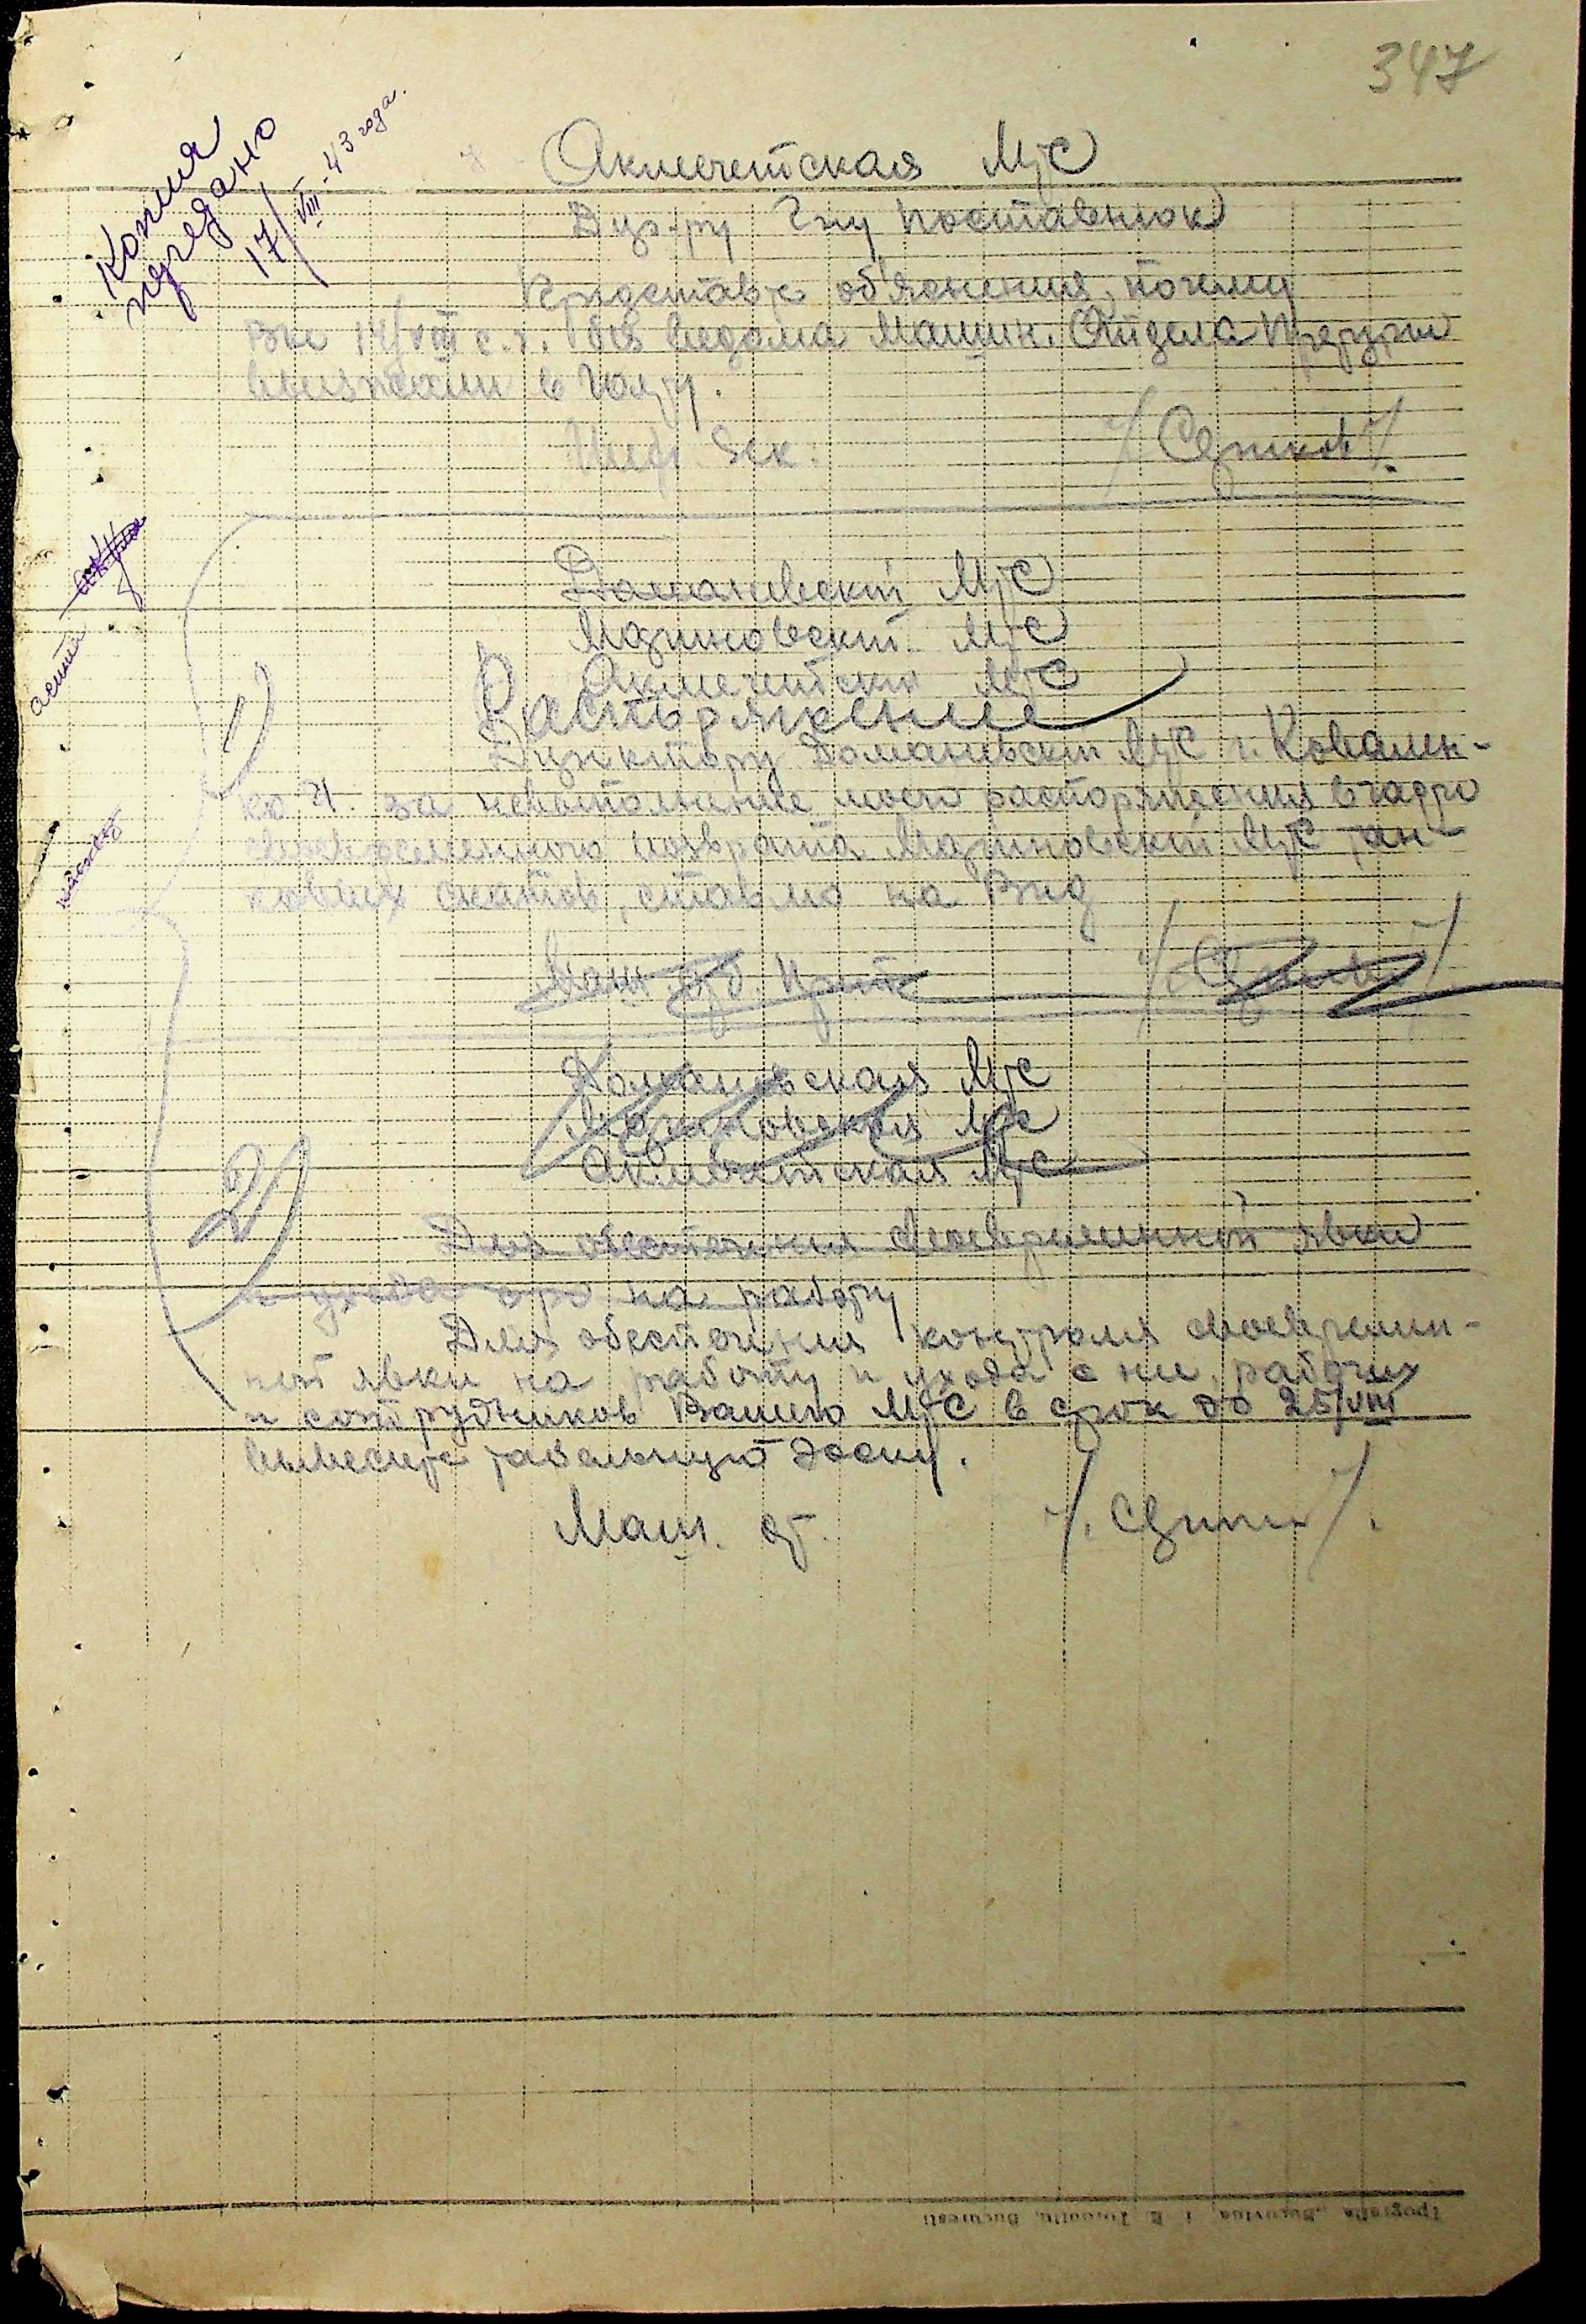 347
Копия
передано
17/VIII-43 года.
Акмечетская МТС
Дир-ру Г-ну Поставнюк
Представте об'яснения, почему
Вы 14/VIII с.г. без ведома Машин. Отдела Префект
выезжали в Голту.
Шеф. Сек. /Сутков/
Доманевской МТС
Мариновской МТС
Акмечетской МТС
Распоряжение
1) Директору Доманевской МТС г. Ковален-
ко И. за невыполнение моего распоряжения
своевременного возврата Мариновской МТС
скатов, ставлю на Вид
Маш. От.
Доманевская МТС
Мариновская МТС
Акмечетская МТС
2) Для обеспечения своевременной явки
и ухода на работу
Для обеспечения контроля своевремен-
ной явки на работу и ухода с нее рабочих
и сотрудников Вашего МТС в срок до 25/VIII
вывесите табельную доску.
Маш. от.
Tipografia „Bucovina" I. E. Torouțiu, București